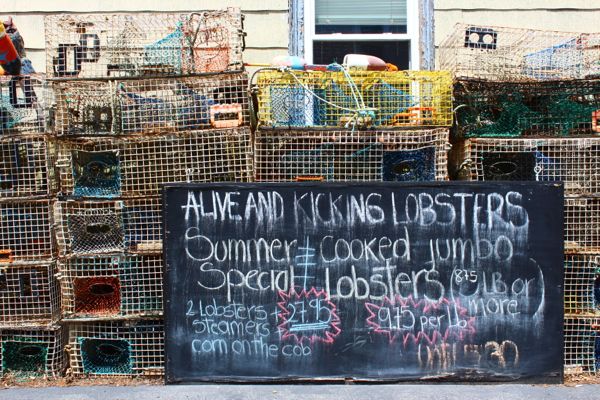 ALIVE AND KICKING LOBSTERS
Summer
Special
2 Lobsters +
Steamers
corn on the cob
27.95
cooked jumbo
Lobsters (8.75 LB or
more)
9.75 per lb